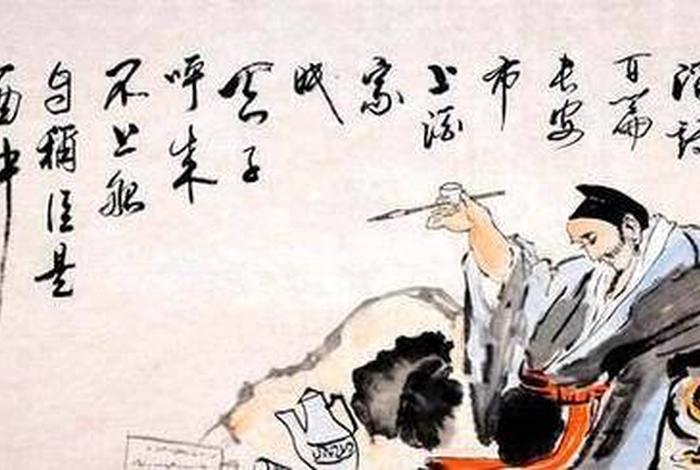 酒詩
百篇
长安
市
上酒
家
眠
天子
呼来
不上船
自稱臣是
酒中